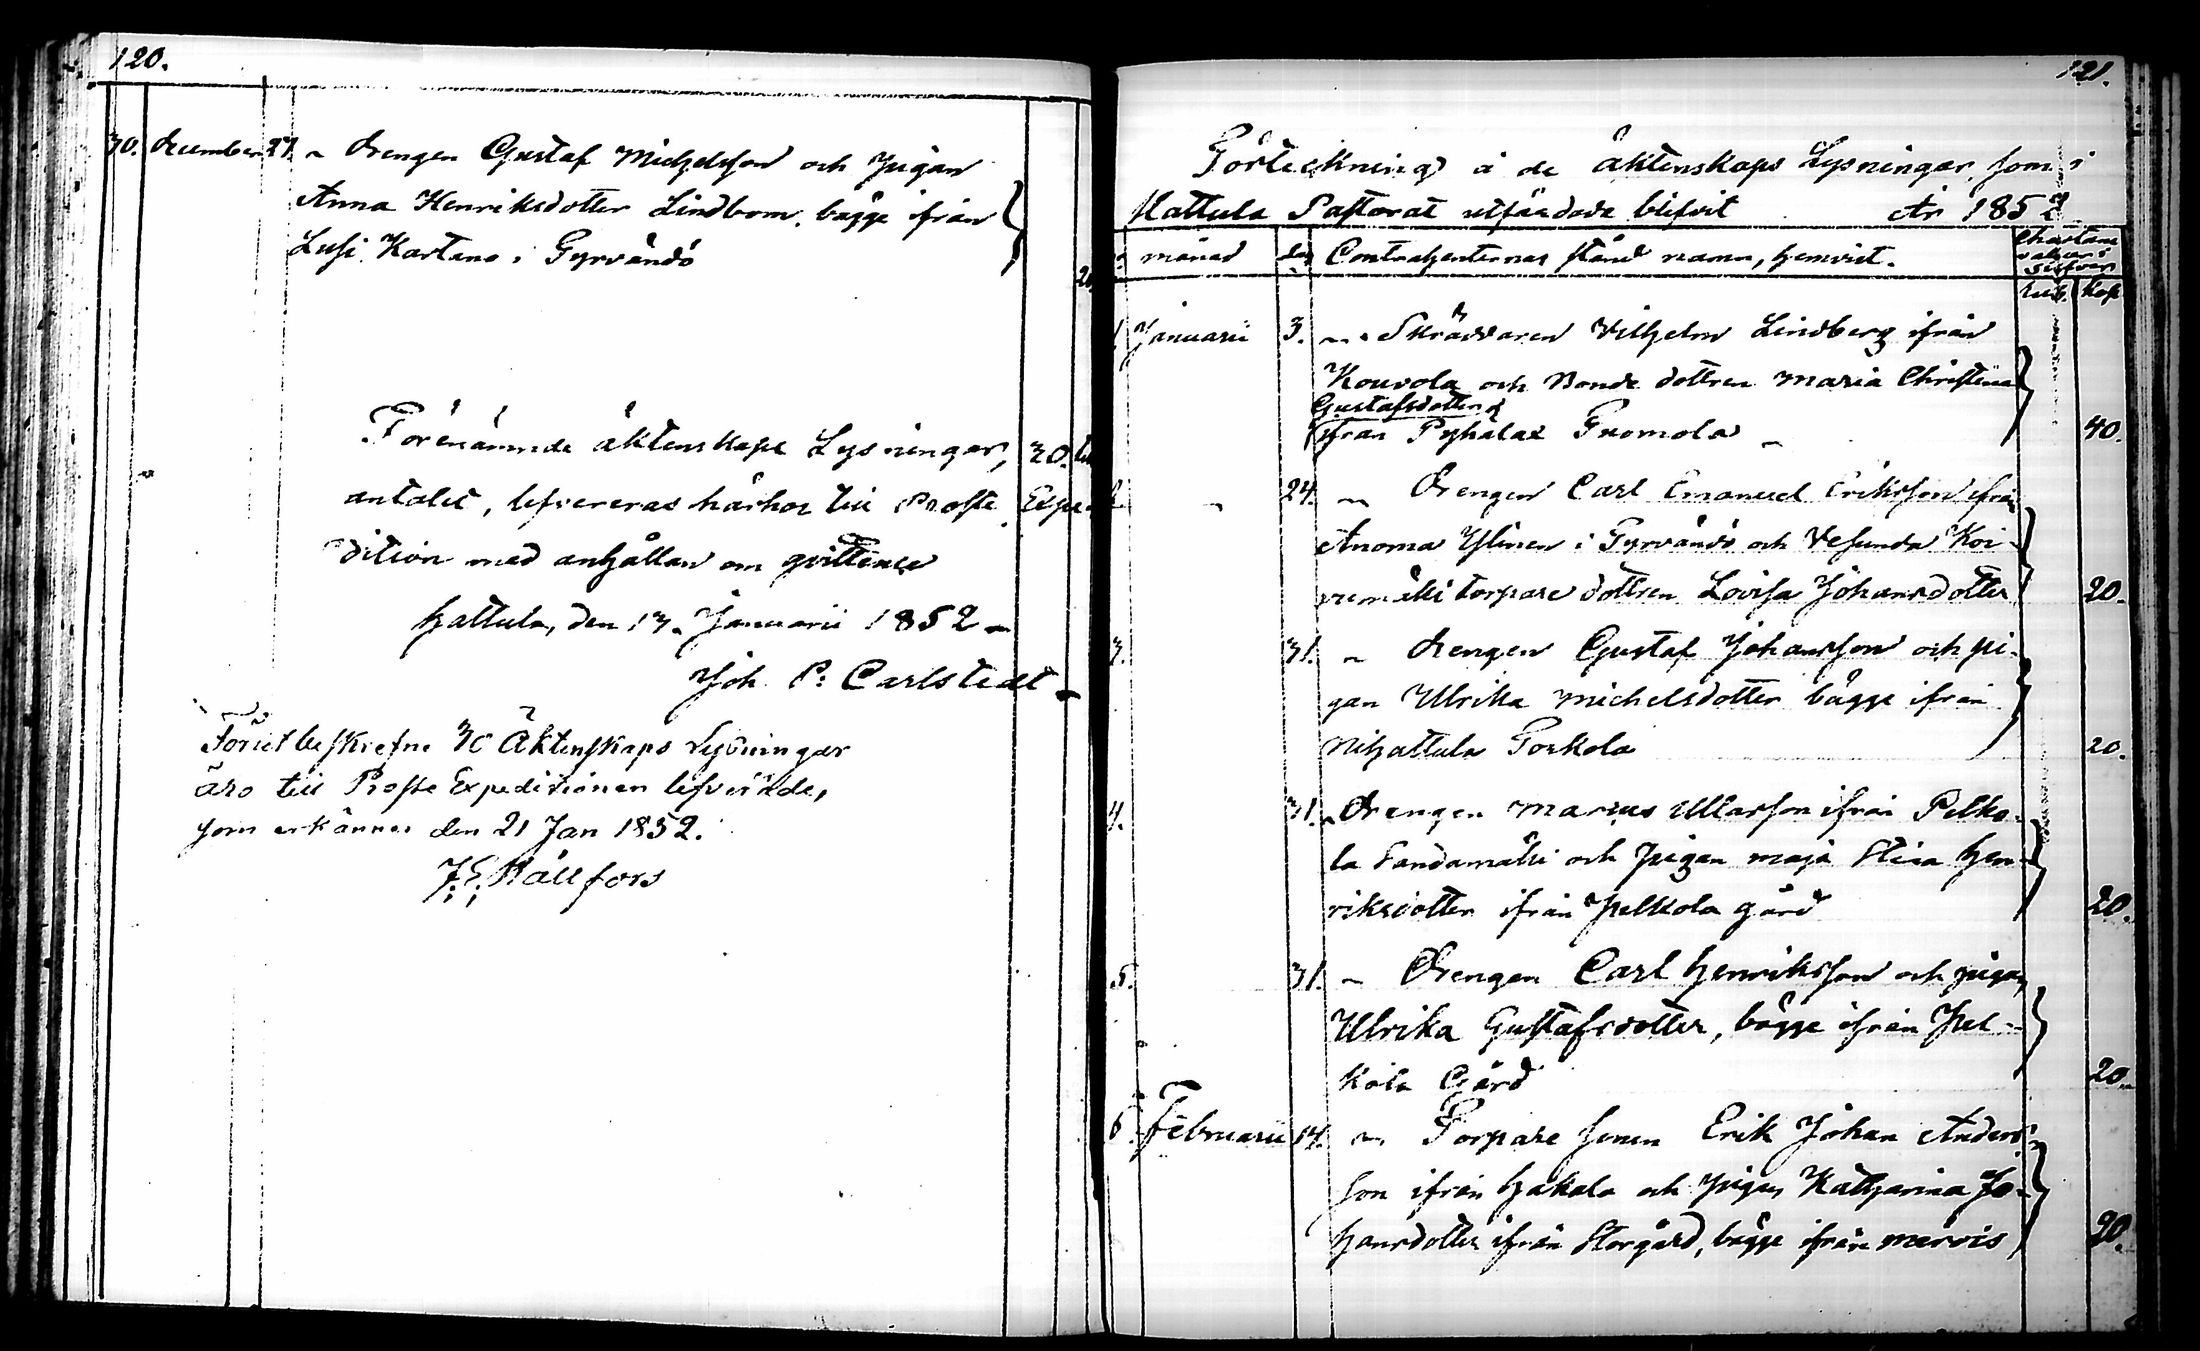 120.
30. December 27. Drengen Gustaf Michelsson och pigan
Anna Henriksdotter Lindbom, bägge ifrån
Lusi Kartano i Tyrvändö
20
Förenämnde äktenskaps Lysningar, 30. till
antalet, lefvereras härhos till Proste Expe-
dition med anhållan om qvittence
Hattula, den 13. Januarii 1852
Joh. P: Carlstedt
Föruttbeskrefne 30 Äktenskaps Lysningar
äro till Proste Expeditionen lefverade,
som erkännes den 21 Jan 1852.
J. E. Källfors
121.
Förteckning å de äktenskaps Lysningar, som i
Hattula Pastorat utfärdade blifvit År 1852
månad dag Contrahenternas stånd namn, hemvist. Chartæ
valeur i
silfver
Rub. Kop
1. Januarii 3. Skräddaren Vilhelm Lindberg ifrån
Kouvola och Bonde dottren Maria Christina
Gustafsdotter
ifrån Pyhälax Tuomola 40.
2. 24. Drengen Carl Emanuel Eriksson ifrån
Anoma Ylinen i Tyrvändö och Vesunda Koi-
vumäki torpare dottren Lovisa Johansdotter 20.
3. 31. Drengen Gustaf Johansson och pi-
gan Ulrika Michelsdotter bägge ifrån
Nihattula Torkola 20.
4. 31. Drengen Marius Ullarsson ifrån Pelko-
la Sandamäki och pigan Maja Stina Hen-
riksdotter ifrån Pelkola gård 20.
5. 31. Drengen Carl Henriksson och pigan
Ulrika Gustafsdotter, bägge ifrån Pel-
kola Gård 20.
6. Februarii 14. Torpare sonen Erik Johan Anders-
son ifrån Hakala och pigan Katharina Jo-
hansdotter ifrån Storgård, bägge ifrån Mervis 20.